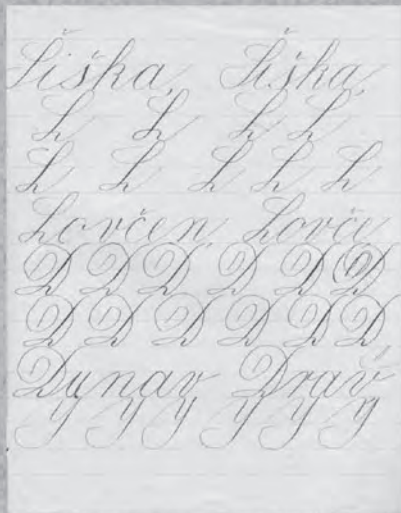 Šiška, Šiška,
L L L L
L L L L L
Lovčen, Lovče
D D D D D D
D D D D D D
Dunav Drav
y y y y y y